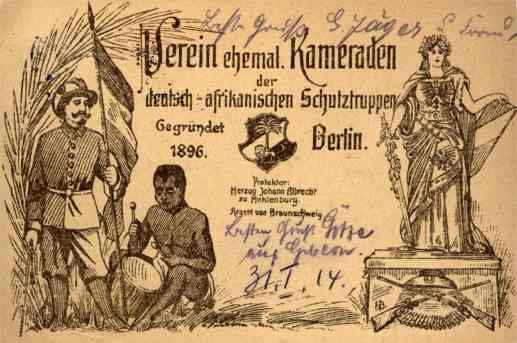 Beste Grüße G Jäger
Verein ehemal. Kameraden
der
deutsch-afrikanischen Schutztruppen
Gegründet
1896.
Berlin.
Protektor:
Herzog Johann Albrecht
zu Meklenburg.
Regent von Braunschweig
Besten Gruß
aus
31.I.14.